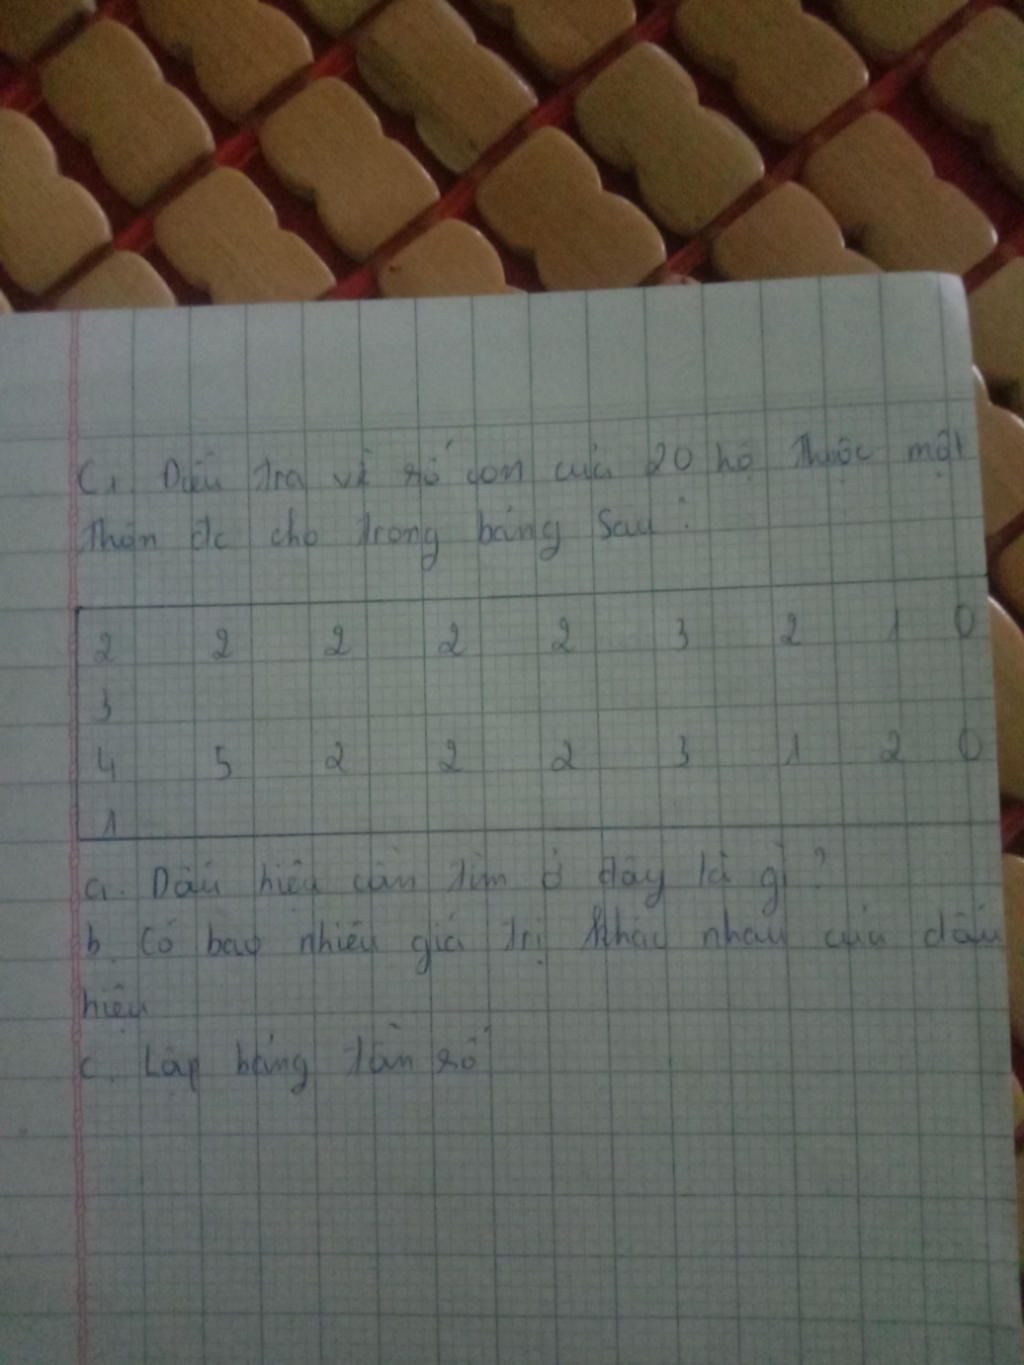 C1 Điều tra về số con của 20 hộ thuộc một
thôn đc cho trong bảng sau :
2 2 2 2 2 3 2 1 0
3
4 5 2 2 2 3 1 2 0
1
a. Dấu hiệu cần tìm ở đây là gì ?
b. Có bao nhiêu giá trị khác nhau của dấu
hiệu
c. Lập bảng tần số